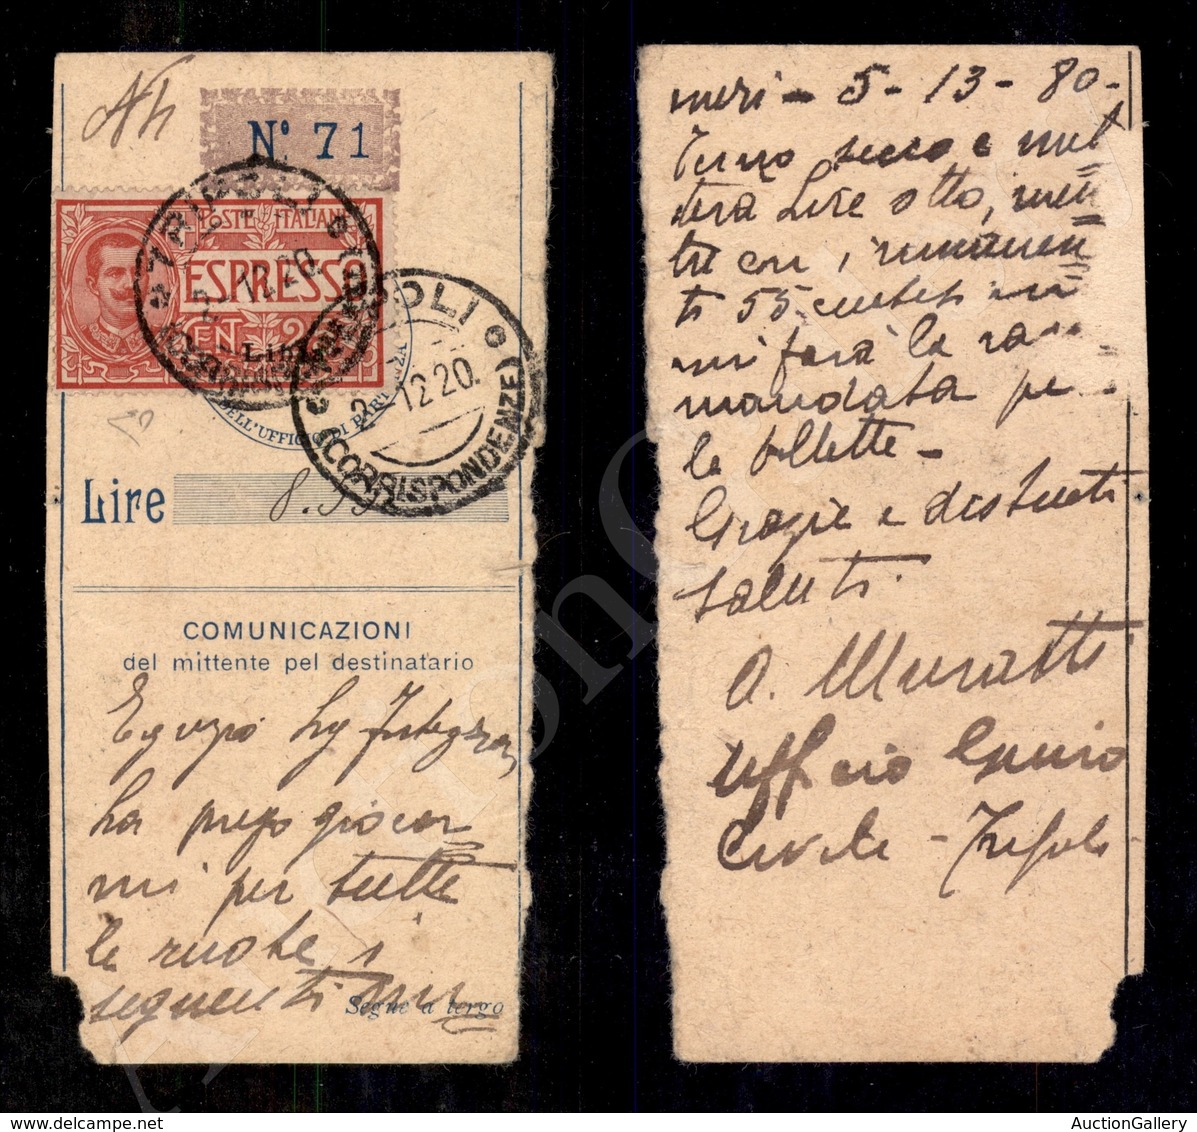 N° 71
TRIPOLI
POSTE ITALIANE
ESPRESSO
CENT 25
Libia
2-12.20.
TRIPOLI
2-12.20.
(CORRISPONDENZE)
DELL'UFFICIO DI PARTENZA
Lire 8.55
COMUNICAZIONI
del mittente pel destinatario
ha prego giocar
mi per tutte
le ruote i
seguenti nu
Segue a tergo
meri - 5 - 13 - 80 -
Terno secco e met
terà Lire otto, men
tre con i rimanen
ti 55 mi
mi farà la rac
mandata pe
le bollette -
Grazie e distinti
saluti.
A. Muratti
Ufficio Genio
Civile - Tripoli
AuctionGallery